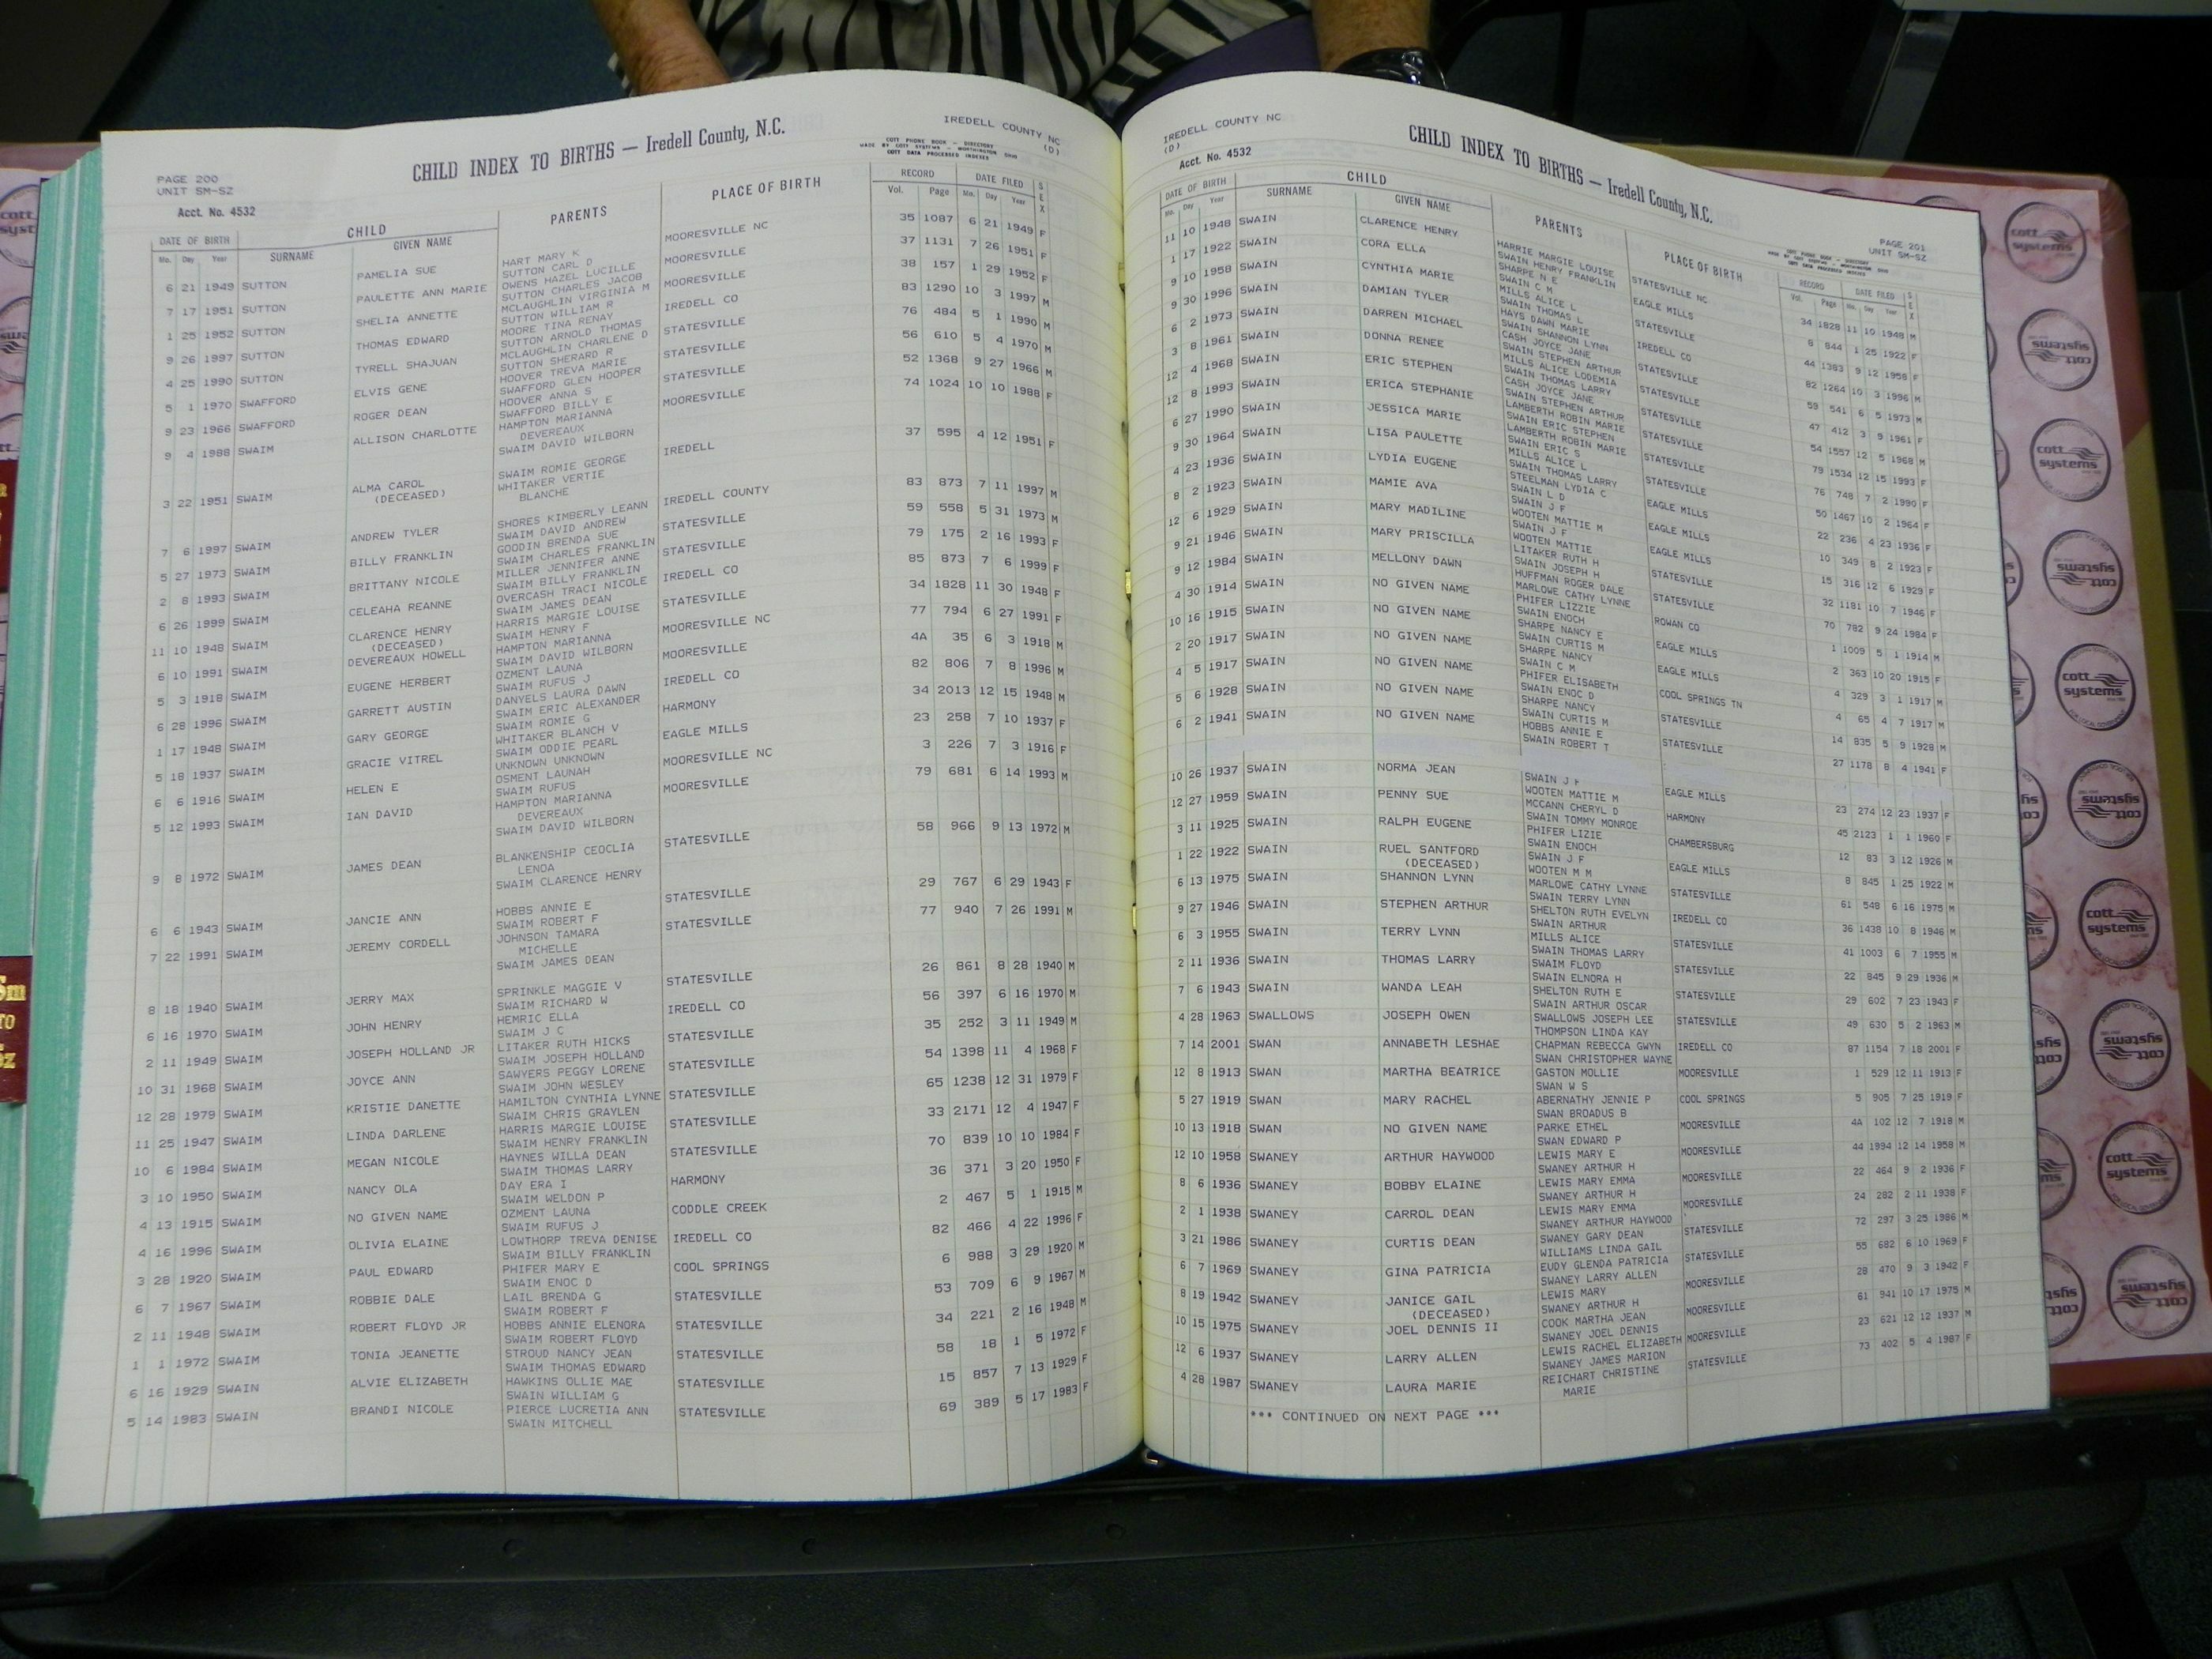 IREDELL COUNTY NC
(D)
CHILD INDEX TO BIRTHS — Iredell County, N.C.
COTT PHONE BOOK - DIRECTORY
MADE BY COTT SYSTEMS - WORTHINGTON OHIO
COTT DATA PROCESSED INDEXES
PAGE 200
UNIT SM-SZ
Acct. No. 4532
DATE OF BIRTH CHILD PARENTS PLACE OF BIRTH RECORD DATE FILED SEX
Mo. Day Year SURNAME GIVEN NAME Vol. Page Mo. Day Year
6 21 1949 SUTTON PAMELIA SUE HART MARY K MOORESVILLE NC 35 1087 6 21 1949 F
SUTTON CARL D
7 17 1951 SUTTON PAULETTE ANN MARIE OWENS HAZEL LUCILLE MOORESVILLE 37 1131 7 26 1951 F
SUTTON CHARLES JACOB
1 25 1952 SUTTON SHELIA ANNETTE MCLAUGHLIN VIRGINIA M MOORESVILLE 38 157 1 29 1952 F
SUTTON WILLIAM R
9 26 1997 SUTTON THOMAS EDWARD MOORE TINA RENAY IREDELL CO 83 1290 10 3 1997 M
SUTTON ARNOLD THOMAS
4 25 1990 SUTTON TYRELL SHAJUAN MCLAUGHLIN CHARLENE D STATESVILLE 76 484 5 1 1990 M
SUTTON SHERARD R
5 1 1970 SWAFFORD ELVIS GENE HOOVER TREVA MARIE STATESVILLE 56 610 5 4 1970 M
SWAFFORD GLEN HOOPER
9 23 1966 SWAFFORD ROGER DEAN HOOVER ANNA S STATESVILLE 52 1368 9 27 1966 M
SWAFFORD BILLY E
9 4 1988 SWAIM ALLISON CHARLOTTE HAMPTON MARIANNA MOORESVILLE 74 1024 10 10 1988 F
DEVEREAUX
SWAIM DAVID WILBORN
3 22 1951 SWAIM ALMA CAROL SWAIM ROMIE GEORGE IREDELL 37 595 4 12 1951 F
(DECEASED) WHITAKER VERTIE
BLANCHE
7 6 1997 SWAIM ANDREW TYLER SHORES KIMBERLY LEANN IREDELL COUNTY 83 873 7 11 1997 M
SWAIM DAVID ANDREW
5 27 1973 SWAIM BILLY FRANKLIN GOODIN BRENDA SUE STATESVILLE 59 558 5 31 1973 M
SWAIM CHARLES FRANKLIN
2 8 1993 SWAIM BRITTANY NICOLE MILLER JENNIFER ANNE STATESVILLE 79 175 2 16 1993 F
SWAIM BILLY FRANKLIN
6 26 1999 SWAIM CELEAHA REANNE OVERCASH TRACI NICOLE IREDELL CO 85 873 7 6 1999 F
SWAIM JAMES DEAN
11 10 1948 SWAIM CLARENCE HENRY HARRIS MARGIE LOUISE STATESVILLE 34 1828 11 30 1948 F
(DECEASED) SWAIM HENRY F
6 10 1991 SWAIM DEVEREAUX HOWELL HAMPTON MARIANNA MOORESVILLE NC 77 794 6 27 1991 F
SWAIM DAVID WILBORN
5 3 1918 SWAIM EUGENE HERBERT OZMENT LAUNA MOORESVILLE 4A 35 6 3 1918 M
SWAIM RUFUS J
6 28 1996 SWAIM GARRETT AUSTIN DANYELS LAURA DAWN IREDELL CO 82 806 7 8 1996 M
SWAIM ERIC ALEXANDER
1 17 1948 SWAIM GARY GEORGE SWAIM ROMIE G HARMONY 34 2013 12 15 1948 M
WHITAKER BLANCH V
5 18 1937 SWAIM GRACIE VITREL SWAIM ODDIE PEARL EAGLE MILLS 23 258 7 10 1937 F
UNKNOWN UNKNOWN
6 6 1916 SWAIM HELEN E OSMENT LAUNAH MOORESVILLE NC 3 226 7 3 1916 F
SWAIM RUFUS
5 12 1993 SWAIM IAN DAVID HAMPTON MARIANNA MOORESVILLE 79 681 6 14 1993 M
DEVEREAUX
SWAIM DAVID WILBORN
9 8 1972 SWAIM JAMES DEAN BLANKENSHIP CEOCLIA STATESVILLE 58 966 9 13 1972 M
LENDA
SWAIM CLARENCE HENRY
6 6 1943 SWAIM JANCIE ANN HOBBS ANNIE E STATESVILLE 29 767 6 29 1943 F
SWAIM ROBERT F
7 22 1991 SWAIM JEREMY CORDELL JOHNSON TAMARA STATESVILLE 77 940 7 26 1991 M
MICHELLE
SWAIM JAMES DEAN
8 18 1940 SWAIM JERRY MAX SPRINKLE MAGGIE V STATESVILLE 26 861 8 28 1940 M
SWAIM RICHARD W
6 16 1970 SWAIM JOHN HENRY HEMRIC ELLA IREDELL CO 56 397 6 16 1970 M
SWAIM J C
2 11 1949 SWAIM JOSEPH HOLLAND JR LITAKER RUTH HICKS STATESVILLE 35 252 3 11 1949 M
SWAIM JOSEPH HOLLAND
10 31 1968 SWAIM JOYCE ANN SAWYERS PEGGY LORENE STATESVILLE 54 1398 11 4 1968 F
SWAIM JOHN WESLEY
12 28 1979 SWAIM KRISTIE DANETTE HAMILTON CYNTHIA LYNNE STATESVILLE 65 1238 12 31 1979 F
SWAIM CHRIS GRAYLEN
11 25 1947 SWAIM LINDA DARLENE HARRIS MARGIE LOUISE STATESVILLE 33 2171 12 4 1947 F
SWAIM HENRY FRANKLIN
10 6 1984 SWAIM MEGAN NICOLE HAYNES WILLA DEAN STATESVILLE 70 839 10 10 1984 F
SWAIM THOMAS LARRY
3 10 1950 SWAIM NANCY OLA DAY ERA I HARMONY 36 371 3 20 1950 F
SWAIM WELDON P
4 13 1915 SWAIM NO GIVEN NAME OZMENT LAUNA CODDLE CREEK 2 467 5 1 1915 M
SWAIM RUFUS J
4 16 1996 SWAIM OLIVIA ELAINE LOWTHORP TREVA DENISE IREDELL CO 82 466 4 22 1996 F
SWAIM BILLY FRANKLIN
3 28 1920 SWAIM PAUL EDWARD PHIFER MARY E COOL SPRINGS 6 988 3 29 1920 M
SWAIM ENOC D
6 7 1967 SWAIM ROBBIE DALE LAIL BRENDA G STATESVILLE 53 709 6 9 1967 M
SWAIM ROBERT F
2 11 1948 SWAIM ROBERT FLOYD JR HOBBS ANNIE ELENORA STATESVILLE 34 221 2 16 1948 M
SWAIM ROBERT FLOYD
1 1 1972 SWAIM TONIA JEANETTE STROUD NANCY JEAN STATESVILLE 58 18 1 5 1972 F
SWAIM THOMAS EDWARD
6 16 1929 SWAIN ALVIE ELIZABETH HAWKINS OLLIE MAE STATESVILLE 15 857 7 13 1929 F
SWAIN WILLIAM G
5 14 1983 SWAIN BRANDI NICOLE PIERCE LUCRETIA ANN STATESVILLE 69 389 5 17 1983 F
SWAIN MITCHELL
IREDELL COUNTY NC
(D)
Acct. No. 4532
CHILD INDEX TO BIRTHS — Iredell County, N.C.
PAGE 201
UNIT SM-SZ
DATE OF BIRTH CHILD PARENTS PLACE OF BIRTH RECORD DATE FILED SEX
Mo. Day Year SURNAME GIVEN NAME Vol. Page Mo. Day Year
11 10 1948 SWAIN CLARENCE HENRY HARRIE MARGIE LOUISE STATESVILLE NC 34 1828 11 10 1948 M
SWAIN HENRY FRANKLIN
1 17 1922 SWAIN CORA ELLA SHARPE N E EAGLE MILLS 8 844 1 25 1922 F
SWAIN C M
9 10 1958 SWAIN CYNTHIA MARIE MILLS ALICE L STATESVILLE 44 1383 9 12 1958 F
SWAIN THOMAS L
9 30 1996 SWAIN DAMIAN TYLER HAYS DAWN MARIE IREDELL CO 82 1264 10 3 1996 M
SWAIN SHANNON LYNN
6 2 1973 SWAIN DARREN MICHAEL CASH JOYCE JANE STATESVILLE 59 541 6 5 1973 M
SWAIN STEPHEN ARTHUR
3 8 1961 SWAIN DONNA RENEE MILLS ALICE LODEMIA STATESVILLE 47 412 3 9 1961 F
SWAIN THOMAS LARRY
12 4 1968 SWAIN ERIC STEPHEN CASH JOYCE JANE STATESVILLE 54 1557 12 5 1968 M
SWAIN STEPHEN ARTHUR
12 8 1993 SWAIN ERICA STEPHANIE LAMBERTH ROBIN MARIE STATESVILLE 79 1534 12 15 1993 F
SWAIN ERIC STEPHEN
6 27 1990 SWAIN JESSICA MARIE LAMBERTH ROBIN MARIE STATESVILLE 76 748 7 2 1990 F
SWAIN ERIC S
9 30 1964 SWAIN LISA PAULETTE MILLS ALICE L STATESVILLE 50 1467 10 2 1964 F
SWAIN THOMAS LARRY
4 23 1936 SWAIN LYDIA EUGENE STEELMAN LYDIA C EAGLE MILLS 22 236 4 23 1936 F
SWAIN L D
8 2 1923 SWAIN MAMIE AVA SWAIN J F EAGLE MILLS 10 349 8 2 1923 F
WOOTEN MATTIE M
12 6 1929 SWAIN MARY MADILINE SWAIN J F EAGLE MILLS 15 316 12 6 1929 F
WOOTEN MATTIE
9 21 1946 SWAIN MARY PRISCILLA LITAKER RUTH H STATESVILLE 32 1181 10 7 1946 F
SWAIN JOSEPH H
9 12 1984 SWAIN MELLONY DAWN HUFFMAN ROGER DALE ROWAN CO 70 782 9 24 1984 F
MARLOWE CATHY LYNNE
4 30 1914 SWAIN NO GIVEN NAME PHIFER LIZZIE EAGLE MILLS 1 1009 5 1 1914 M
SWAIN ENOCH
10 16 1915 SWAIN NO GIVEN NAME SHARPE NANCY E EAGLE MILLS 2 363 10 20 1915 F
SWAIN CURTIS M
2 20 1917 SWAIN NO GIVEN NAME SHARPE NANCY COOL SPRINGS TN 4 329 3 1 1917 M
SWAIN C M
4 5 1917 SWAIN NO GIVEN NAME PHIFER ELISABETH STATESVILLE 4 65 4 7 1917 M
SWAIN ENOC D
5 6 1928 SWAIN NO GIVEN NAME SHARPE NANCY STATESVILLE 14 835 5 9 1928 M
SWAIN CURTIS M
6 2 1941 SWAIN NO GIVEN NAME HOBBS ANNIE E 27 1178 8 4 1941 F
SWAIN ROBERT T
10 26 1937 SWAIN NORMA JEAN SWAIN J F EAGLE MILLS 23 274 12 23 1937 F
WOOTEN MATTIE M
12 27 1959 SWAIN PENNY SUE MCCANN CHERYL D HARMONY 45 2123 1 1 1960 F
SWAIN TOMMY MONROE
3 11 1925 SWAIN RALPH EUGENE PHIFER LIZIE CHAMBERSBURG 12 83 3 12 1926 M
SWAIN ENOCH
1 22 1922 SWAIN RUEL SANTFORD SWAIN J F EAGLE MILLS 8 845 1 25 1922 M
(DECEASED) WOOTEN M M
6 13 1975 SWAIN SHANNON LYNN MARLOWE CATHY LYNNE STATESVILLE 61 548 6 16 1975 M
SWAIN TERRY LYNN
9 27 1946 SWAIN STEPHEN ARTHUR SHELTON RUTH EVELYN IREDELL CO 36 1438 10 8 1946 M
SWAIN ARTHUR
6 3 1955 SWAIN TERRY LYNN MILLS ALICE STATESVILLE 41 1003 6 7 1955 M
SWAIN THOMAS LARRY
2 11 1936 SWAIN THOMAS LARRY SWAIM FLOYD STATESVILLE 22 845 9 29 1936 M
SWAIN ELNORA H
7 6 1943 SWAIN WANDA LEAH SHELTON RUTH E STATESVILLE 29 602 7 23 1943 F
SWAIN ARTHUR OSCAR
4 28 1963 SWALLOWS JOSEPH OWEN SWALLOWS JOSEPH LEE STATESVILLE 49 630 5 2 1963 M
THOMPSON LINDA KAY
7 14 2001 SWAN ANNABETH LESHAE CHAPMAN REBECCA GWYN IREDELL CO 87 1154 7 18 2001 F
SWAN CHRISTOPHER WAYNE
12 8 1913 SWAN MARTHA BEATRICE GASTON MOLLIE MOORESVILLE 1 529 12 11 1913 F
SWAN W S
5 27 1919 SWAN MARY RACHEL ABERNATHY JENNIE P COOL SPRINGS 5 905 7 25 1919 F
SWAN BROADUS B
10 13 1918 SWAN NO GIVEN NAME PARKE ETHEL MOORESVILLE 4A 102 12 7 1918 M
SWAN EDWARD P
12 10 1958 SWANEY ARTHUR HAYWOOD LEWIS MARY E MOORESVILLE 44 1994 12 14 1958 M
SWANEY ARTHUR H
8 6 1936 SWANEY BOBBY ELAINE LEWIS MARY EMMA MOORESVILLE 22 464 9 2 1936 F
SWANEY ARTHUR H
2 1 1938 SWANEY CARROL DEAN LEWIS MARY EMMA MOORESVILLE 24 282 2 11 1938 F
SWANEY ARTHUR HAYWOOD
3 21 1986 SWANEY CURTIS DEAN SWANEY GARY DEAN STATESVILLE 72 297 3 25 1986 M
WILLIAMS LINDA GAIL
6 7 1969 SWANEY GINA PATRICIA EUDY GLENDA PATRICIA STATESVILLE 55 682 6 10 1969 F
SWANEY LARRY ALLEN
8 19 1942 SWANEY JANICE GAIL LEWIS MARY MOORESVILLE 28 470 9 3 1942 F
(DECEASED) SWANEY ARTHUR H
10 15 1975 SWANEY JOEL DENNIS II COOK MARTHA JEAN MOORESVILLE 61 941 10 17 1975 M
SWANEY JOEL DENNIS
12 6 1937 SWANEY LARRY ALLEN LEWIS RACHEL ELIZABETH MOORESVILLE 23 621 12 12 1937 M
SWANEY JAMES MARION
4 28 1987 SWANEY LAURA MARIE REICHART CHRISTINE STATESVILLE 73 402 5 4 1987 F
MARIE
*** CONTINUED ON NEXT PAGE ***
cott
systems